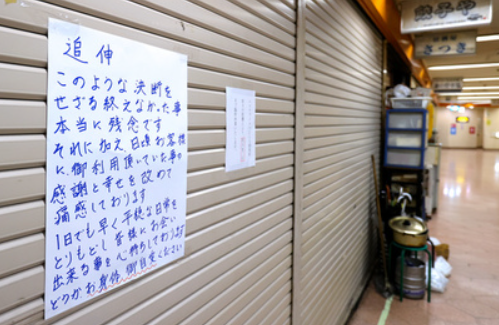 追伸
このような決断を
せざる終えなかった事
本当に残念です
それに加え日頃お客様
に御利用頂いていた事の
感謝と幸せを改めて
痛感しております
1日でも早く平穏な日常を
とりもどし皆様にお会い
出来る事を心待ちしております
どうかお身体御自愛ください
餃子や
さつき